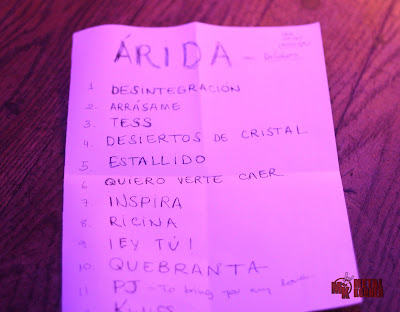 ÁRIDA
1 DESINTEGRACIÓN
2. ARRÁSAME
3. TESS
4. DESIERTOS DE CRISTAL
5 ESTALLIDO
6 QUIERO VERTE CAER
7. INSPIRA
8. RICINA
9 ¡EY TÚ!
10. QUEBRANTA
11 PJ - To bring you my love